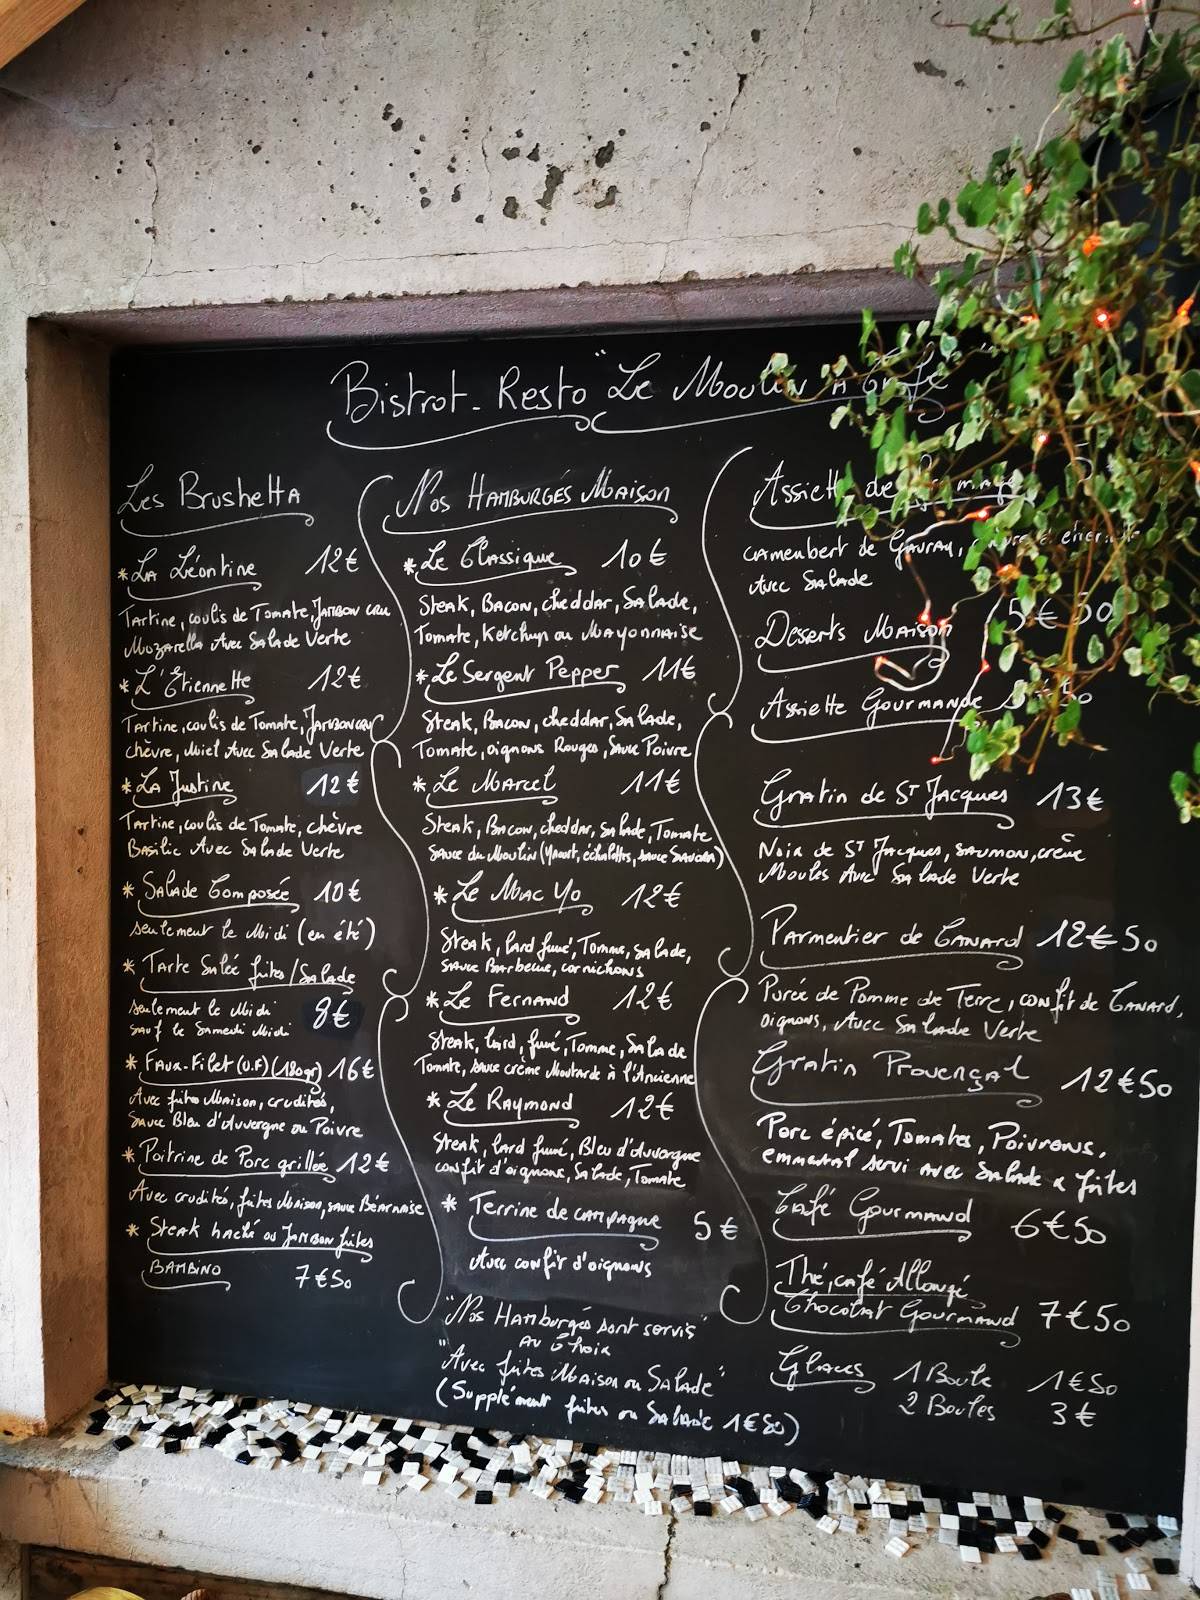 Bistrot - Resto "Le Moulin à Café"
Les Brushetta
* La Léontine 12€
Tartine, coulis de Tomate, Jambon cru
Mozarella Avec Salade Verte
* L'Étiennette 12€
Tartine, coulis de Tomate, Jambon cru
chèvre, Miel Avec Salade Verte
* La Justine 12€
Tartine, coulis de Tomate, chèvre
Basilic Avec Salade Verte
* Salade Composée 10€
seulement le Midi (en été)
* Tarte Salée frites/Salade
seulement le Midi
sauf le Samedi Midi 8€
* Faux-Filet (U.F) (180gr) 16€
Avec frites Maison, crudités,
Sauce Bleu d'Auvergne ou Poivre
* Poitrine de Porc grillée 12€
Avec crudités, frites Maison, sauce Béarnaise
* Steak haché ou Jambon frites
BAMBINO 7€50
Nos Hamburgés Maison
* Le Classique 10€
Steak, Bacon, cheddar, Salade,
Tomate, Ketchup ou Mayonnaise
* Le Sergent Pepper 11€
Steak, Bacon, cheddar, Salade,
Tomate, oignons Rouges, Sauce Poivre
* Le Marcel 11€
Steak, Bacon, cheddar, Salade, Tomate
sauce du Moulin (Yaourt, échalottes, sauce Savora)
* Le Mac Yo 12€
Steak, lard fumé, Tomme, Salade,
sauce Barbecue, cornichons
* Le Fernand 12€
Steak, lard, fumé, Tomme, Salade
Tomate, sauce crème Moutarde à l'Ancienne
* Le Raymond 12€
Steak, lard fumé, Bleu d'Auvergne
confit d'oignons, Salade, Tomate
* Terrine de campagne 5€
Avec confit d'oignons
"Nos Hamburgés sont servis"
au Choix
"Avec frites Maison ou Salade"
(Supplément frites ou Salade 1€50)
Assiette de
Camembert de Gavray,
Avec Salade
Desserts Maison 5€50
Assiette Gourmande
Gratin de St Jacques 13€
Noix de St Jacques, saumon, crème
Moules Avec Salade Verte
Parmentier de Canard 12€50
Purée de Pomme de Terre, confit de Canard,
oignons, Avec Salade Verte
Gratin Provençal 12€50
Porc épicé, Tomates, Poivrons,
emmental servi avec Salade & frites
Café Gourmand 6€50
Thé, café Allongé
Chocolat Gourmand 7€50
Glaces 1 Boule 1€50
2 Boules 3€